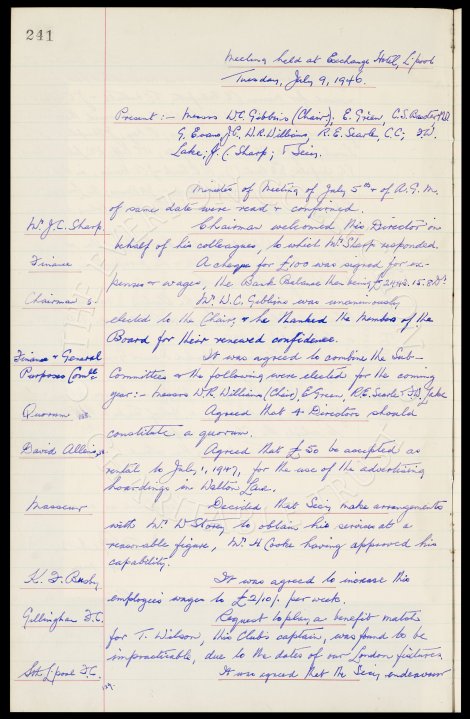 241
Meeting held at Exchange Hotel, L'pool
Tuesday, July 9, 1946.
Present :- Messrs W.C. Gibbins (Chair); E. Green, C.S. Baxter
G. Evans J.P., W.R. Williams, R.E. Searle, C.C.;
Lake; J.C. Sharp; & Secy.
Minutes of Meeting of July 5th & of A.G.M.
of same date were read & confirmed.
Mr J.C. Sharp
Chairman welcomed this Director on
behalf of his colleagues, to which Mr Sharp responded.
Finance
A cheque for £100 was signed for ex-
penses & wages, the Bank Balance then being
Chairman
Mr. W.C. Gibbins was unanimously
elected to the Chair, & he thanked the Members of the
Board for their renewed confidence.
Finance & General
Purposes Comtte
It was agreed to combine the Sub-
Committees & the following were elected for the coming
year:- Messrs W.R. Williams (Chair) E. Green, R.E. Searle & Lake
Quorum
Agreed that 4 Directors should
constitute a quorum.
David Allens,
Agreed that £50 be accepted as
rental to July, 1, 1947, for the use of the advertising
hoardings in Walton Lane.
Masseur
Decided that Secy, make arrangements
with Mr. W Storey to obtain his services at a
reasonable figure, Mr. H Cooke having approved his
capability.
K. F. Busby
It was agreed to increase this
employees wages to £2/10/- per week.
Gillingham F.C.
Request to play a benefit match
for T. Wilson, this Club's captain, was found to be
impracticable, due to the dates of our London fixtures.
Sth L'pool F.C.
It was agreed that the Secy, endeavour